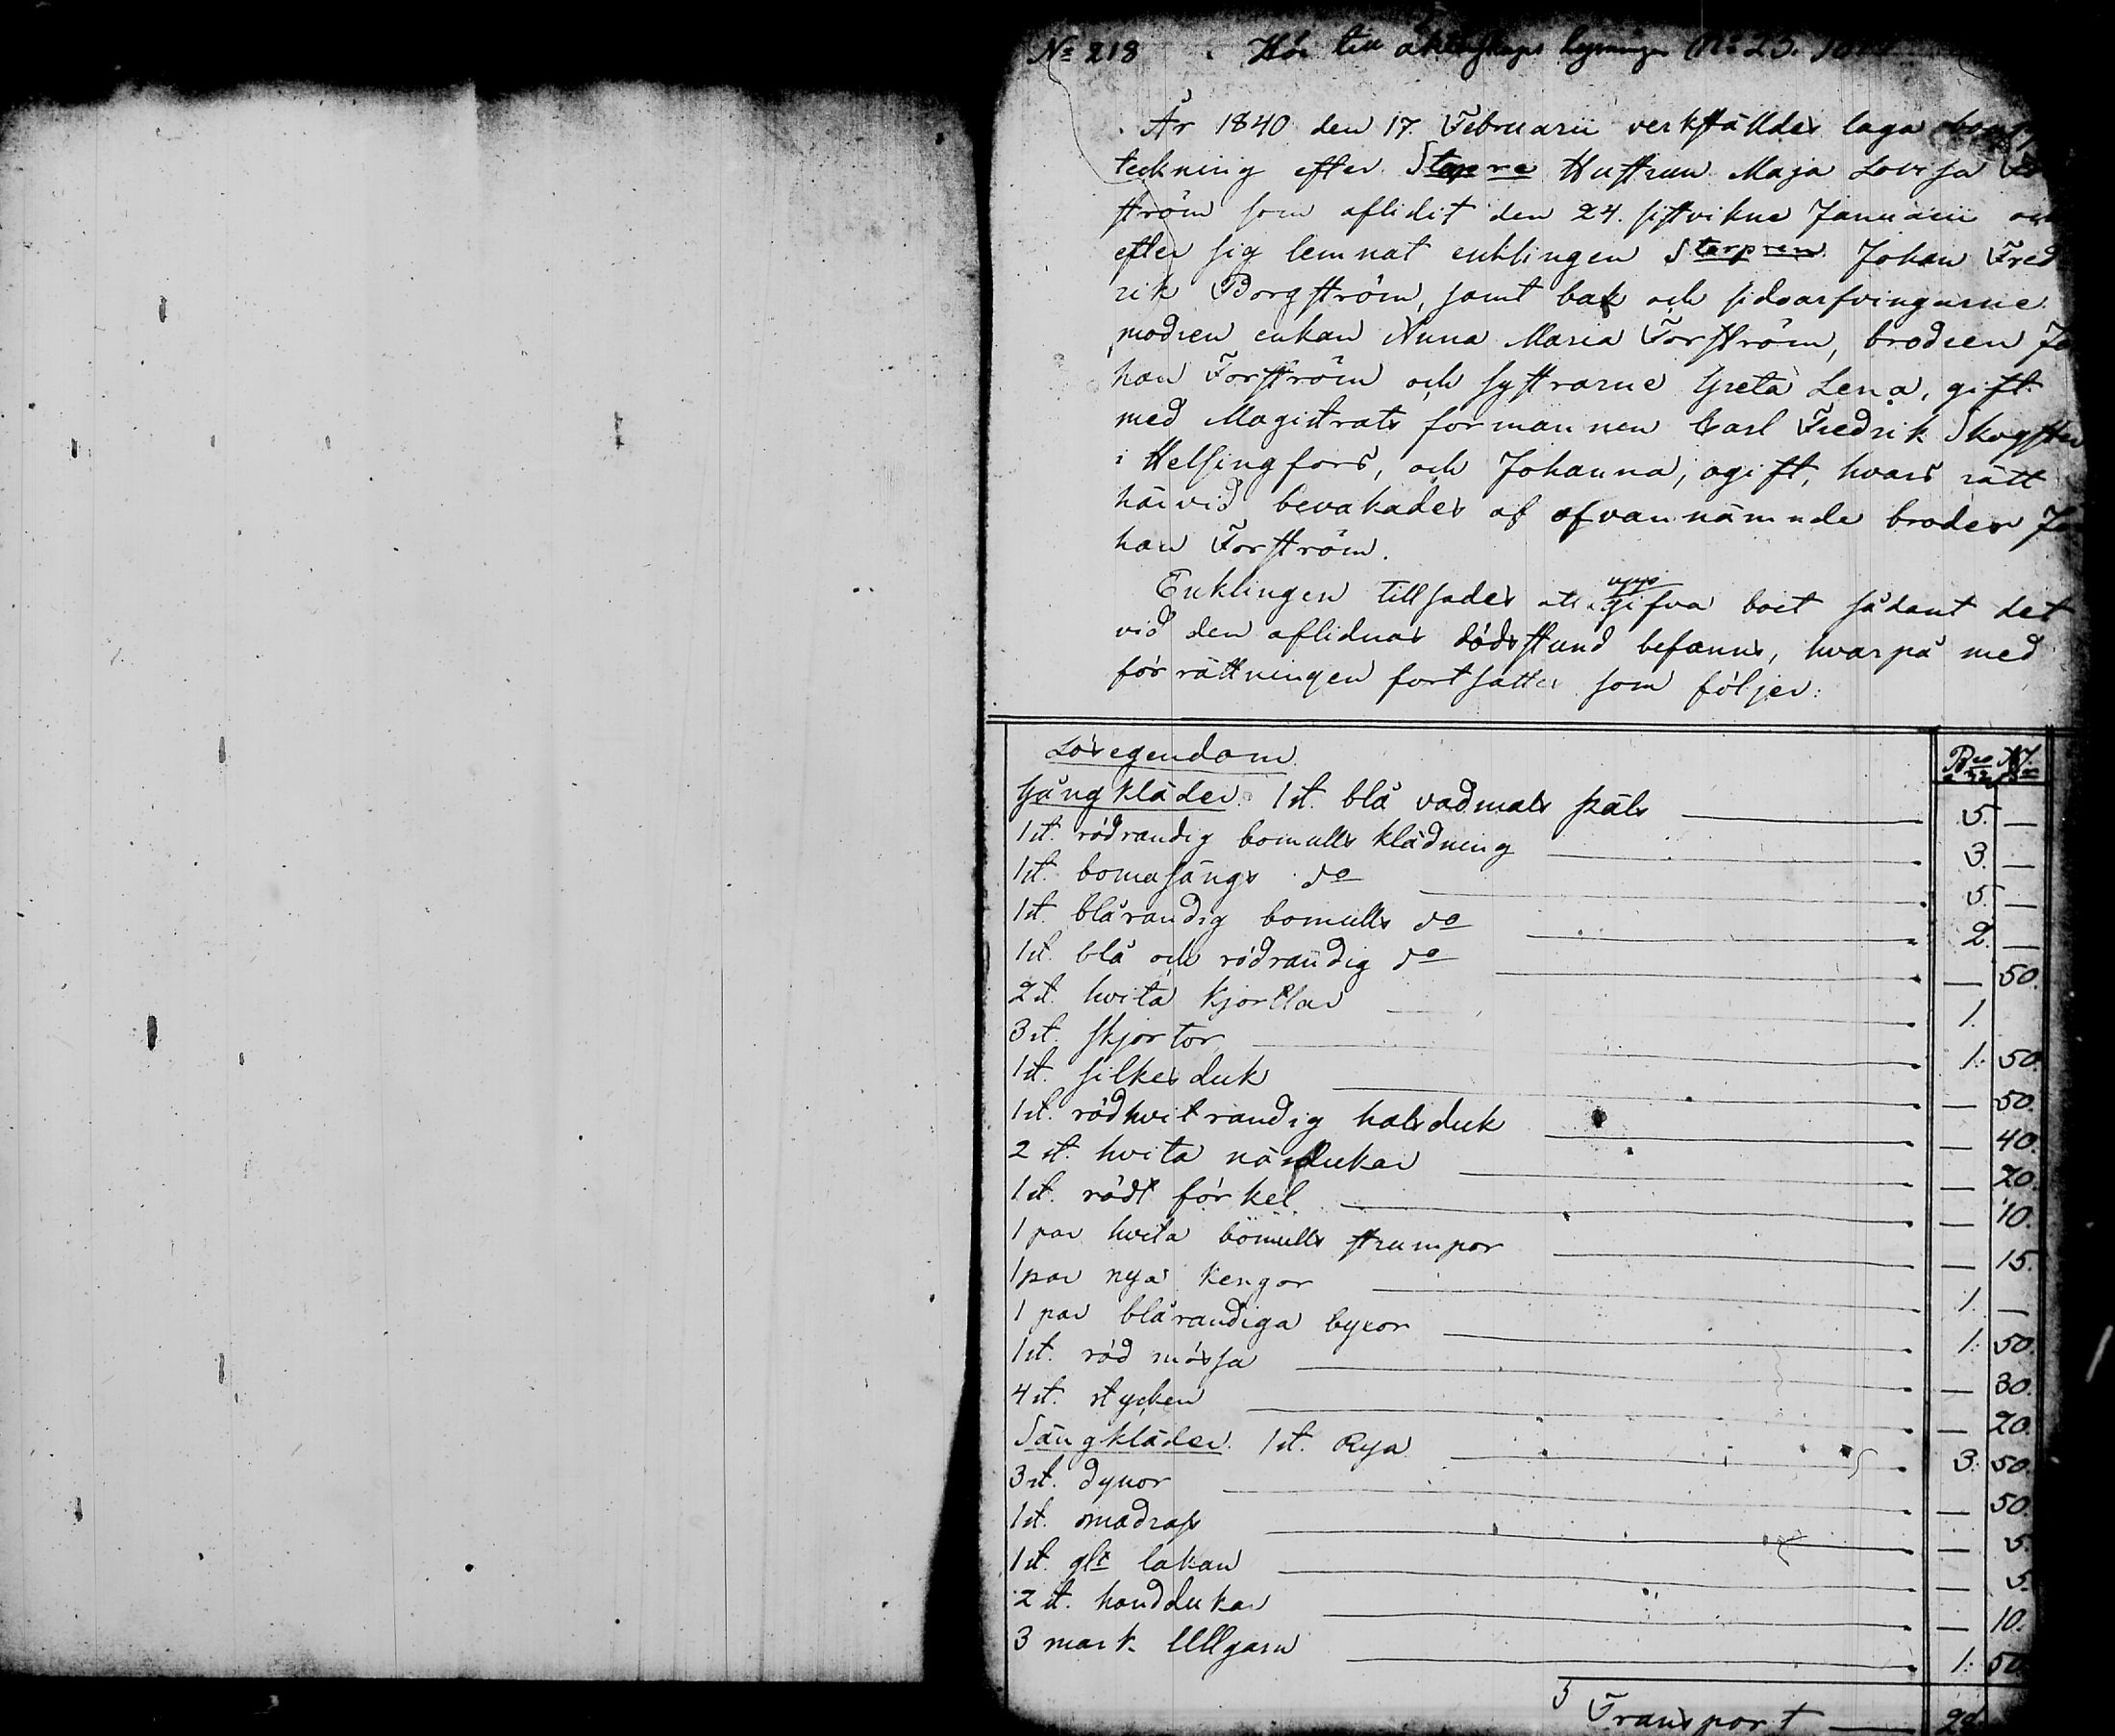 No 218 Hör till äktenskaps lysningen No 23.
År 1840 den 17 Februarii verkställdes laga
teckning efter Torpare Hustrun Maja Lovisa
ström som aflidit den 24. sistvikne Januarii och
efter sig lemnat enklingen Torparen Johan Fred
rik Borgström, samt bak och sidoarfvingarne
modren enkan Anna Maria Forström, brodren Jo
han Forström och systrarne Greta Lena, gift
med Magistrats formannen Carl Fredrik
i Helsingfors, och Johanna, ogift, hvars rätt
härvid bevakades af ofvannämnde broder Jo
han Forström.
Enklingen tillsades att uppgifva boet sådant det
vid den aflidnas dödsstund befanns, hvarpå med
förrättningen fortsattes som följer:
Lösegendom
Gångkläder. 1 st. blå vadmals päls 5. —
1 st. rödrandig bomulls klädning 3. —
1 st. bomasängs do 5. —
1 st. blårandig bomulls do 2. —
1 st. blå och rödrandig do — 50.
2 st. hvita kjortlar 1.
3 st. skjortor 1. 50.
1 st. silkes duk — 50.
1 st. rödhvitrandig halsduk — 40.
2 st. hvita näsdukar — 20.
1 st. rödt förkel — 10.
1 par hvita bomulls strumpor — 15.
1 par nya kengor 1. —
1 par blårandiga byxor 1. 50.
1 st. röd mössa — 30.
4 st. stycken — 20.
Sängkläder. 1 st. Rya 3. 50.
3 st. dynor — 50.
1 st. madrass — 5.
1 st. glt lakan — 5.
2 st. handdukar — 10.
3 mark Ullgarn 1. 50.
Transport